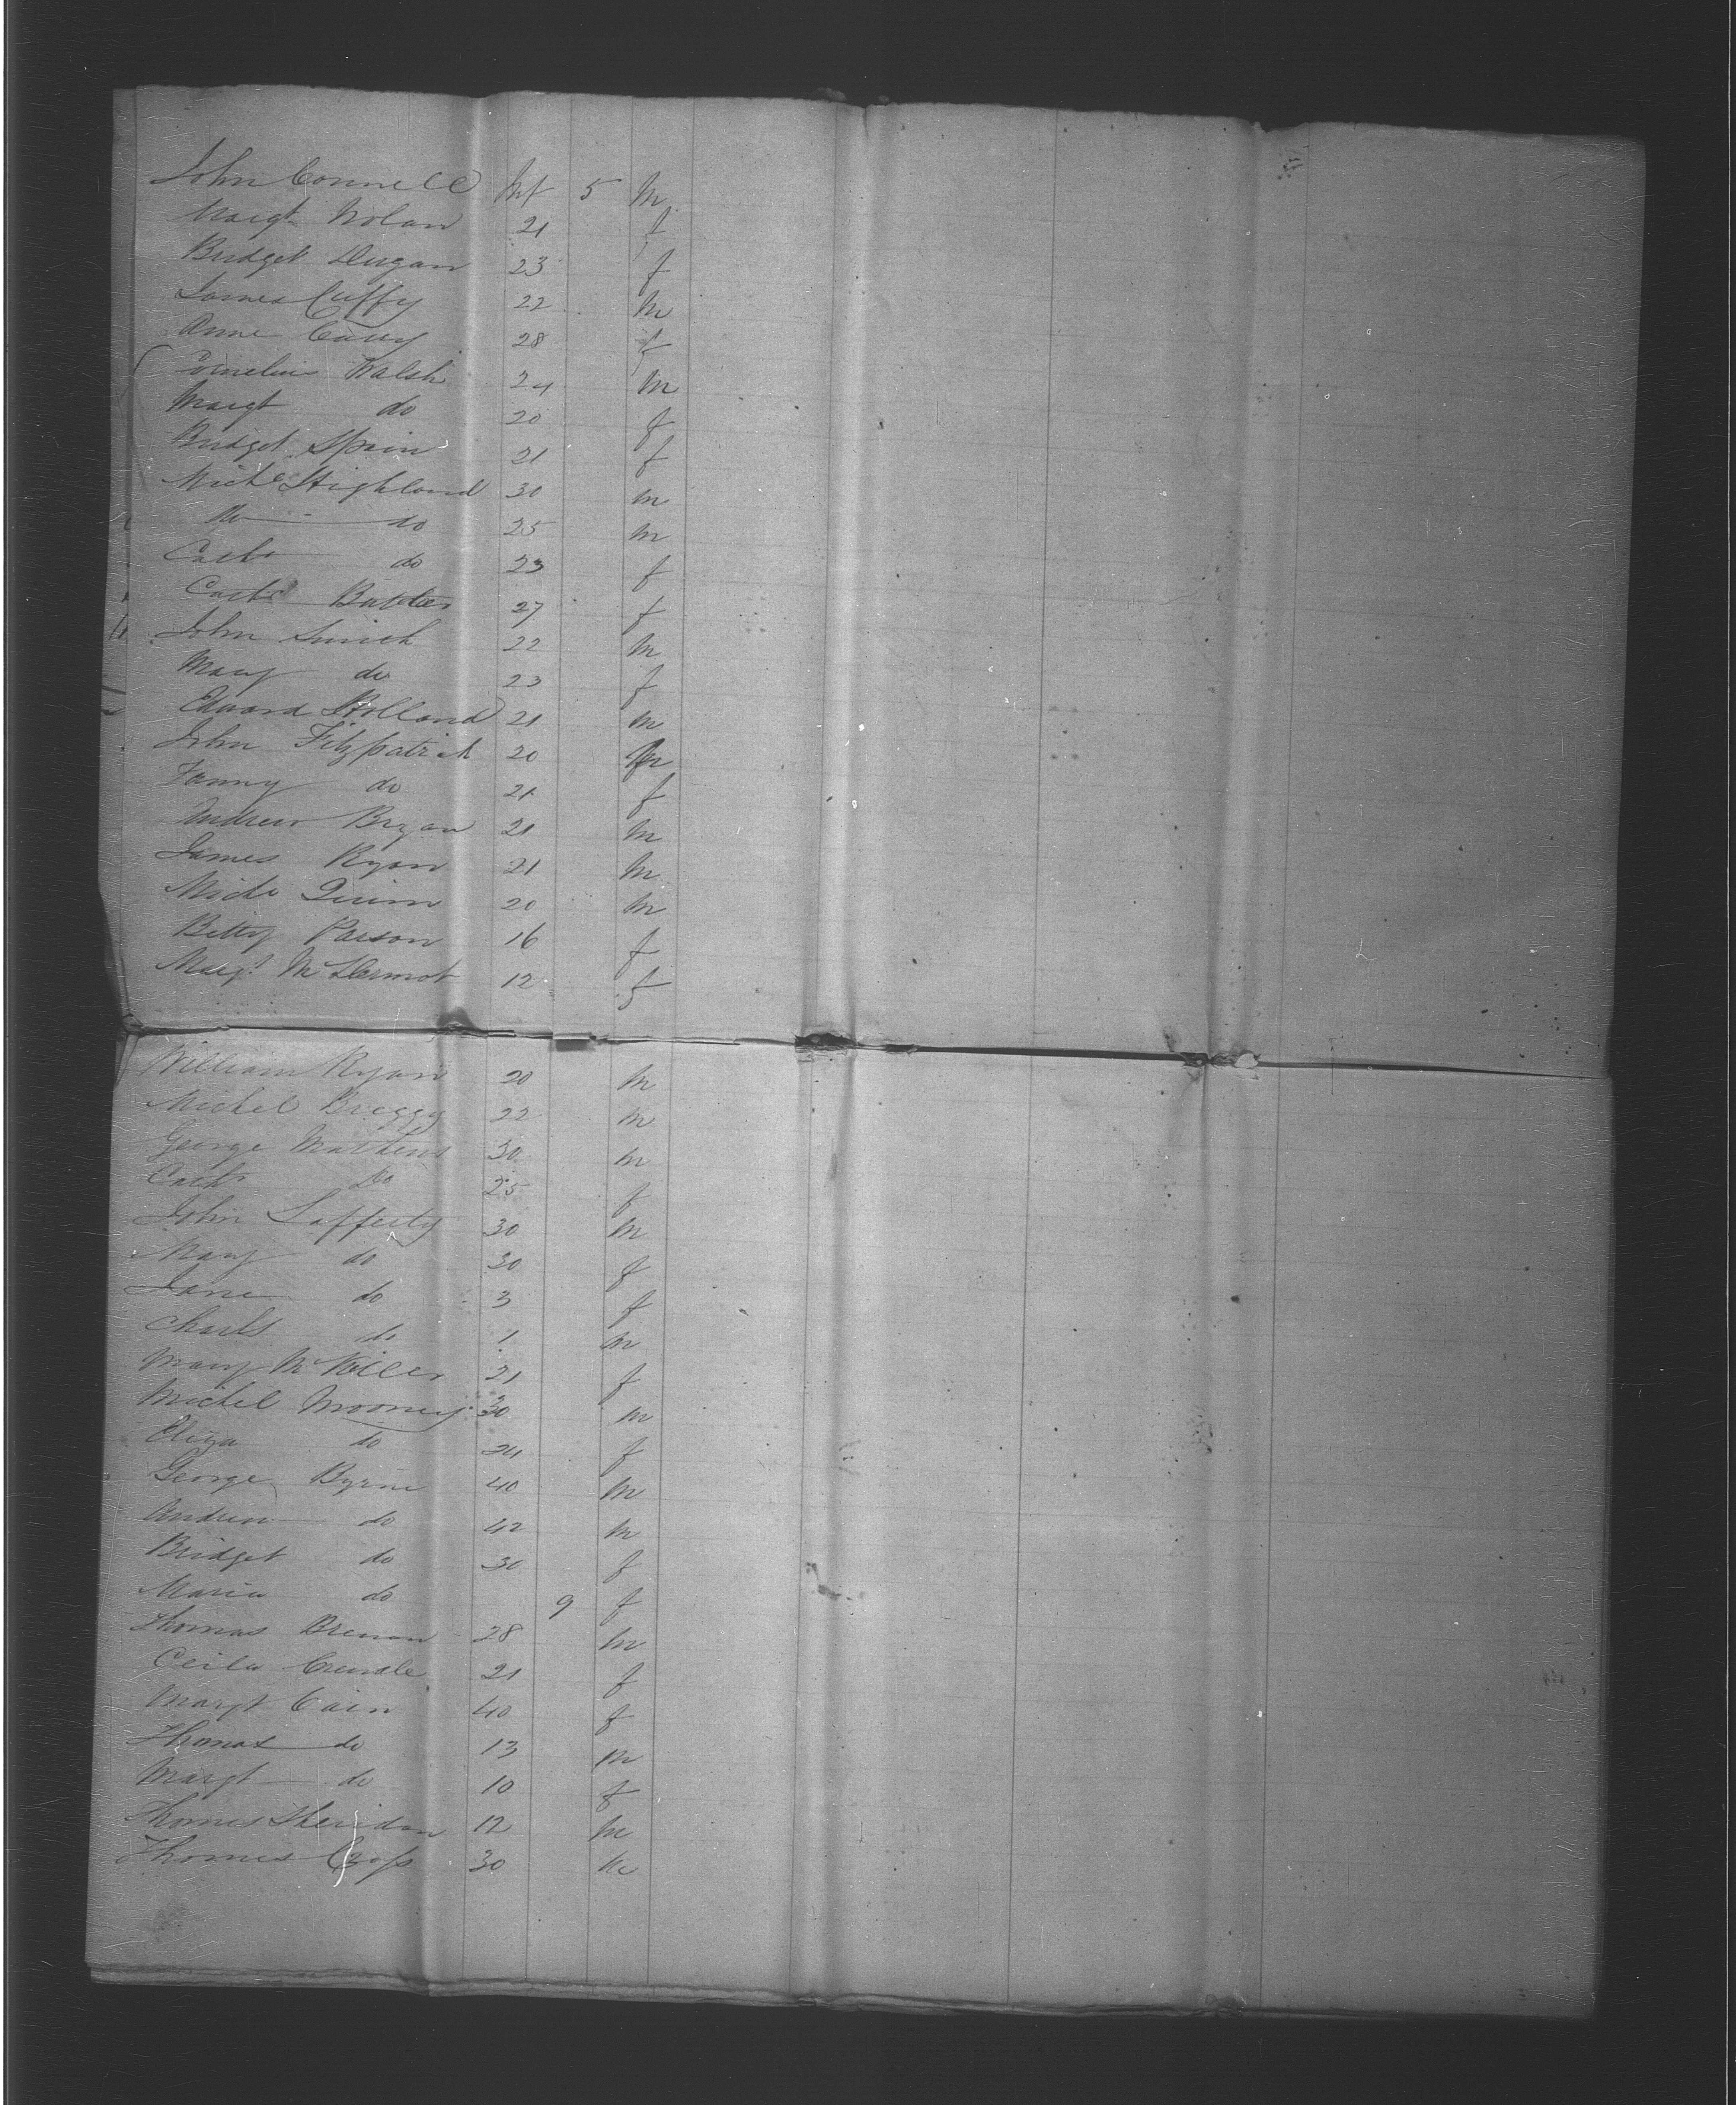 John Connell Inf 5 m
Margt Nolan 21 f
Bridget Dugan 23 f
James Cuffy 22 m
Anne Casey 28 f
Cornelius Walsh 24 m
Margt do 20 f
Bridget Spain 21 f
Michl Highland 30 m
do 25 m
Cath do 23 f
Cath Butler 27 f
John Smith 22 m
Mary do 23 f
Edward Holland 21 m
John Fitzpatrick 20 m
Fanny do 21 f
Andrew Bryan 21 m
James Ryan 21 m
Michl Quinn 20 m
Betty Parson 16 f
Margt McDermot 12 f
William Ryan 20 m
Michel Breggy 22 m
George Mathews 30 m
Cath do 25 f
John Lafferty 30 m
Mary do 30 f
Jane do 3 f
Charls do 1 m
Mary 21 f
Michel Mooney 30 m
Eliza do 24 f
George Byrne 40 m
Andrew do 42 m
Bridget do 30 f
Maria do 9 f
Thomas Brenan 28 m
Celia 21 f
Margt Cain 40 f
Thomas do 13 m
Margt do 10 f
Thomas Sheridan 12 m
Thomas Cross 30 m